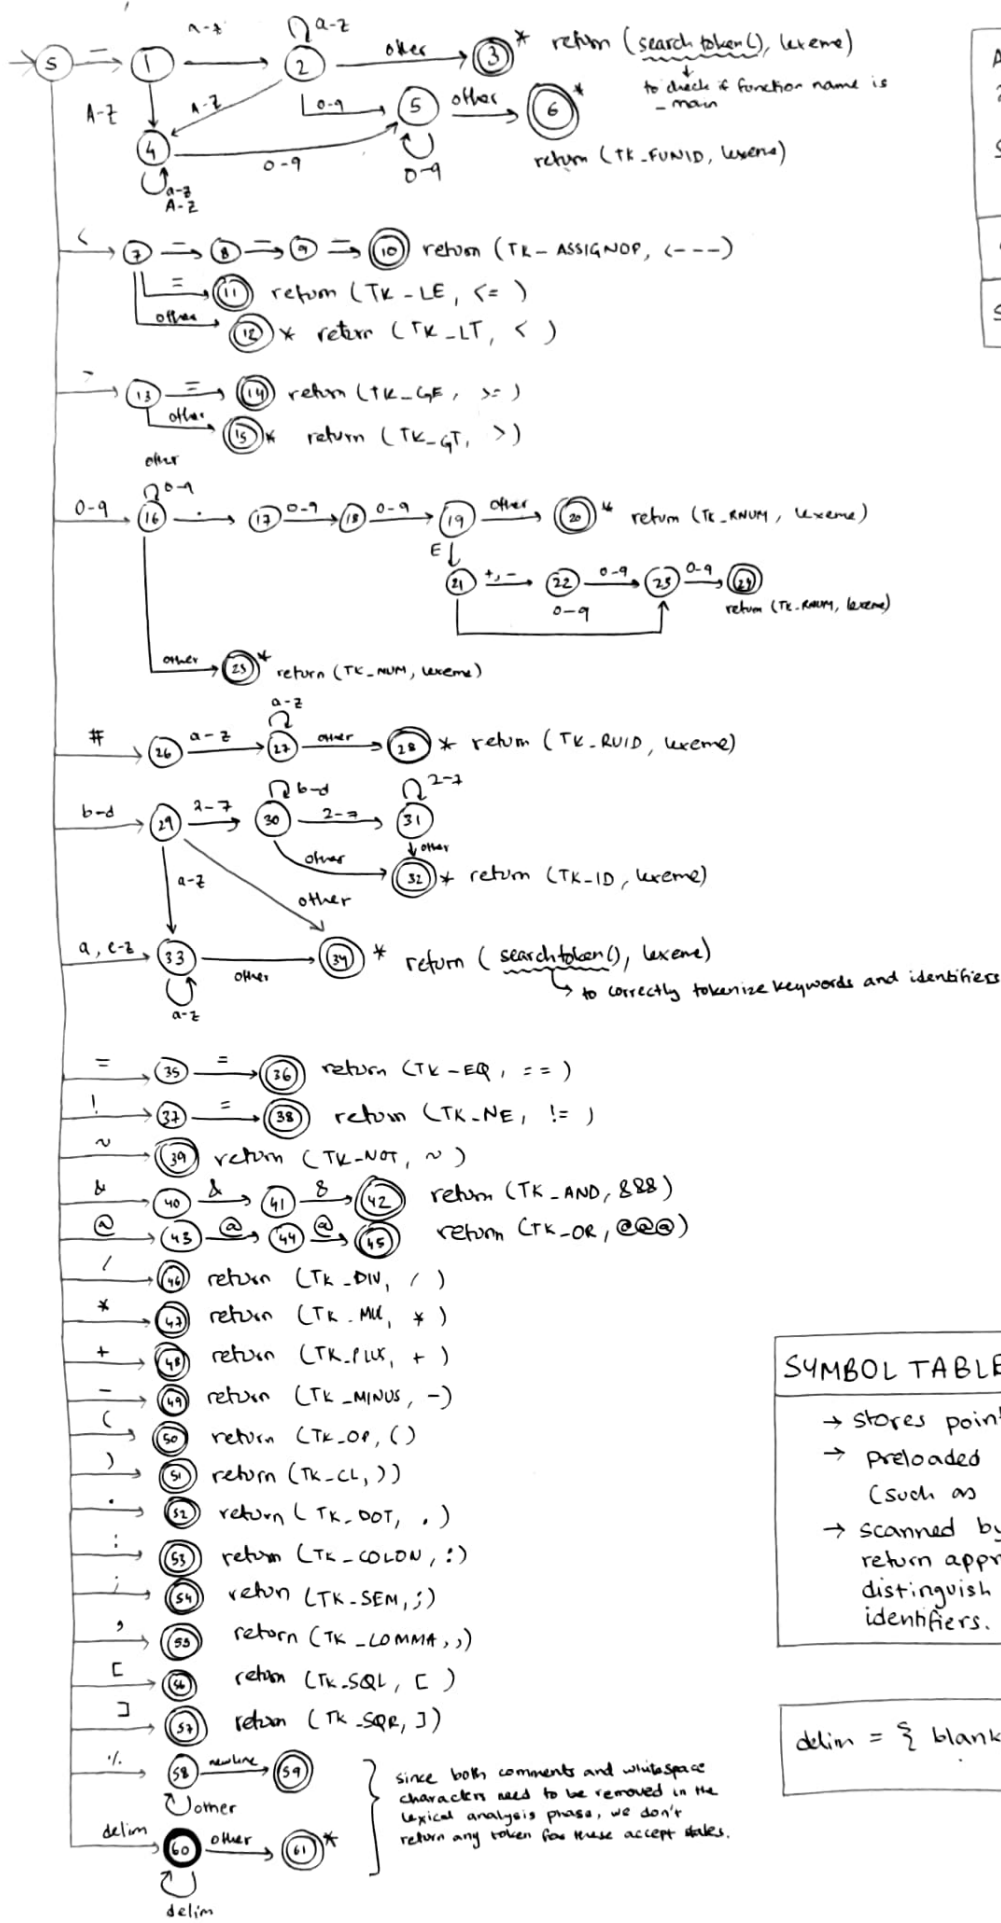 a-z
a-z
S _ 1 2 other 3 * return (search token(), lexeme)
to check if function name is
_main
A-Z A-Z 0-9 5 other 6 *
4 0-9 0-9 return (TK_FUNID, lexeme)
a-z
A-Z
< 7 - 8 - 9 - 10 return (TK_ASSIGNOP, <---)
= 11 return (TK_LE, <=)
other 12 * return (TK_LT, <)
> 13 = 14 return (TK_GE, >=)
other 15 * return (TK_GT, >)
other
0-9
0-9 16 . 17 0-9 18 0-9 19 other 20 * return (TK_RNUM, lexeme)
E
21 +,- 22 0-9 23 0-9 24
0-9 return (TK_RNUM, lexeme)
other 25 * return (TK_NUM, lexeme)
a-z
# 26 a-z 27 other 28 * return (TK_RUID, lexeme)
b-d 2-7
b-d 29 2-7 30 2-7 31
other other
32 * return (TK_ID, lexeme)
a-z other
a, e-z 33 other 34 * return (searchtoken(), lexeme)
to correctly tokenize keywords and identifiers
a-z
= 35 = 36 return (TK_EQ, ==)
! 37 = 38 return (TK_NE, !=)
~ 39 return (TK_NOT, ~)
& 40 & 41 & 42 return (TK_AND, &&&)
@ 43 @ 44 @ 45 return (TK_OR, @@@)
/ 46 return (TK_DIV, /)
* 47 return (TK_MUL, *)
+ 48 return (TK_PLUS, +)
- 49 return (TK_MINUS, -)
( 50 return (TK_OP, ()
) 51 return (TK_CL, ))
. 52 return (TK_DOT, .)
: 53 return (TK_COLON, :)
; 54 return (TK_SEM, ;)
, 55 return (TK_COMMA, ,)
[ 56 return (TK_SQL, [)
] 57 return (TK_SQR, ])
% 58 newline 59
other
delim 60 other 61 *
delim
since both comments and whitespace
characters need to be removed in the
lexical analysis phase, we don't
return any token for these accept states.
SYMBOL TABLE
→ stores
→ preloaded
(such as
→ scanned by
return
distinguish
identifiers.
delim = { blank